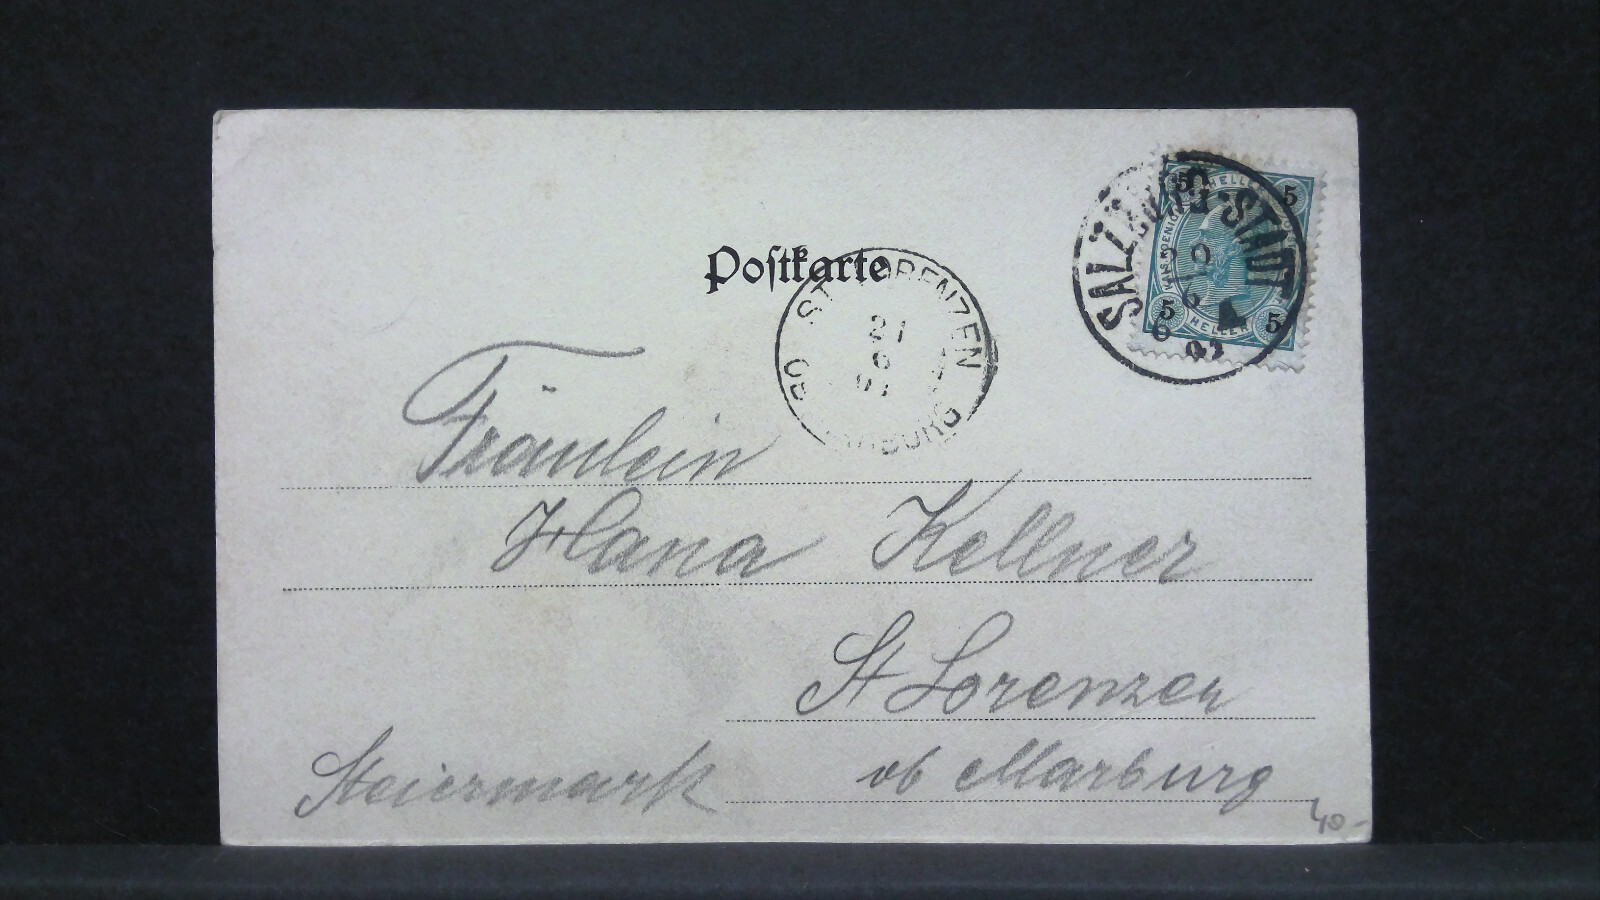 Postkarte
SALZBURG-STADT
5 HELLER 5
5 HELLER 5
ST. LORENZEN
OB MARBURG
21
Fräulein
Hana Kellner
St Lorenzen
ob Marburg
Steiermark
40-